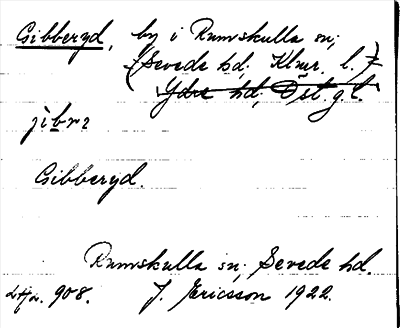 Gibberyd, by i Rumskulla sn;
(Sevede hd, Klmr. l.)
Ydre hd, Öst.g.l.
Gibberyd.
Rumskulla sn; Sevede hd.
908. J. Ericsson 1922.